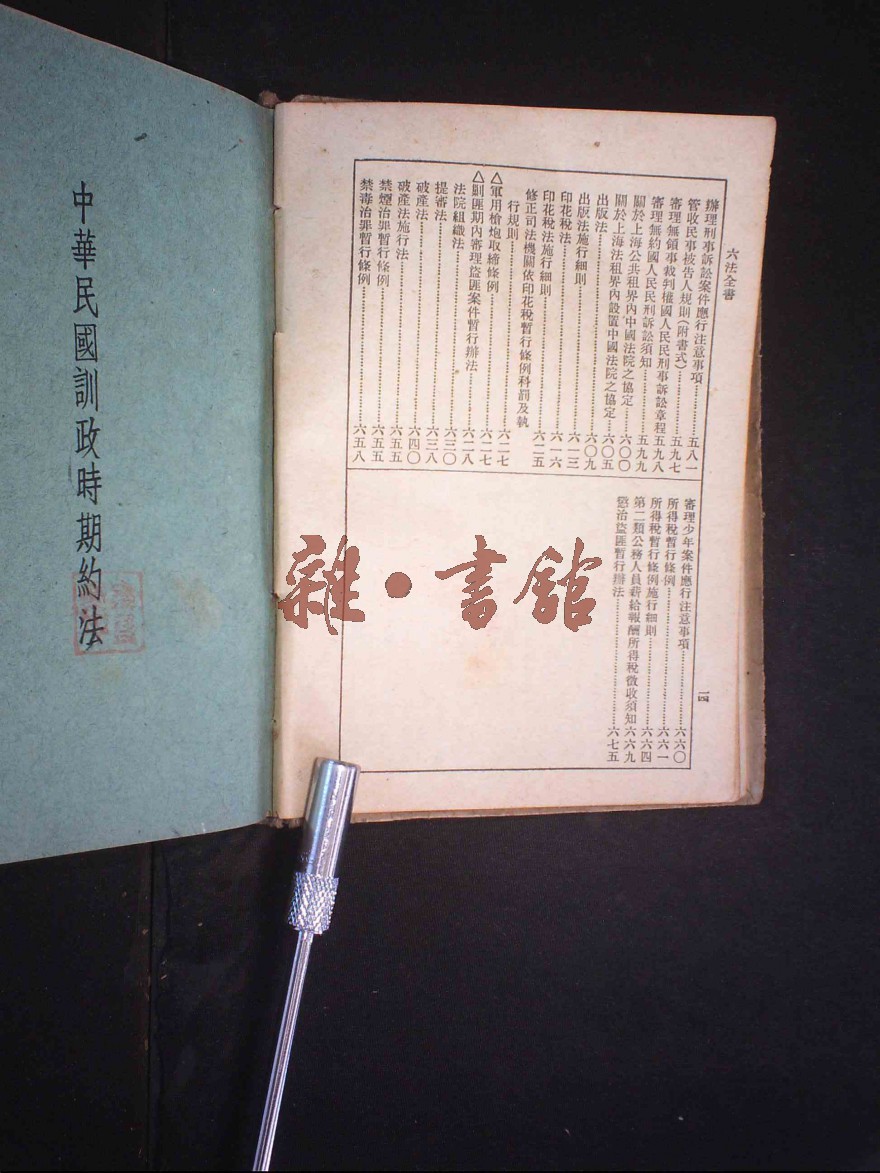 六法全書
辦理刑事訴訟案件應行注意事項……五八一
管收民事被告人規則(附書式)……五九七
審理無領事裁判權國人民民刑事訴訟章程……五九八
審理無約國人民民刑訴訟須知……五九九
關於上海公共租界內中國法院之協定……六〇〇
關於上海法租界內設置中國法院之協定……六〇五
出版法……六〇九
出版法施行細則……六一三
印花稅法……六一六
印花稅法施行細則……六一五
修正司法機關依印花稅暫行條例科罰及執
行規則……六二七
△軍用槍炮取締條例……六二七
△剿匪期內審理盜匪案件暫行辦法……六二八
法院組織法……六三〇
提審法……六三八
破產法……六四〇
破產法施行法……六五五
禁煙治罪暫行條例……六五五
禁毒治罪暫行條例……六五八
審理少年案件應行注意事項……六六〇
所得稅暫行條例……六六一
所得稅暫行條例施行細則……六六四
第二類公務人員薪給報酬所得稅徵收須知……六六九
懲治盜匪暫行辦法……六七五
一四
中華民國訓政時期約法
雜·書館